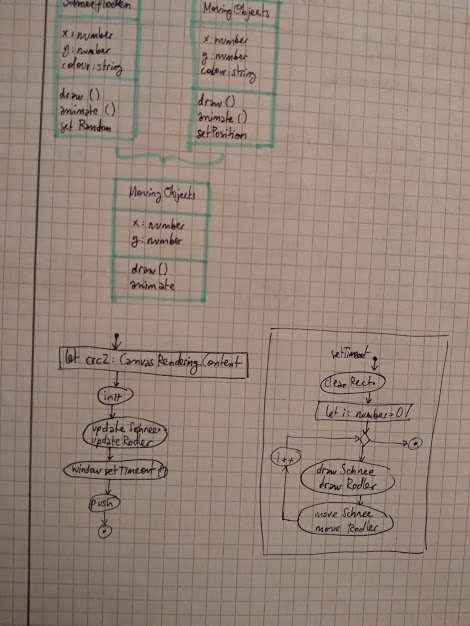 Schneeflocken
x: number
y: number
colour: string
draw ()
animate ()
set Random
Moving Objects
x: number
y: number
colour: string
draw ()
animate ()
setPosition
Moving Objects
x: number
y: number
draw ()
animate
let crc2: Canvas Rendering Context
init
update Schnee
update Rodler
window setTimeout
push
setTimeout
clear Rect
let i: number = 0
i++
draw Schnee
draw Rodler
move Schnee
move Rodler